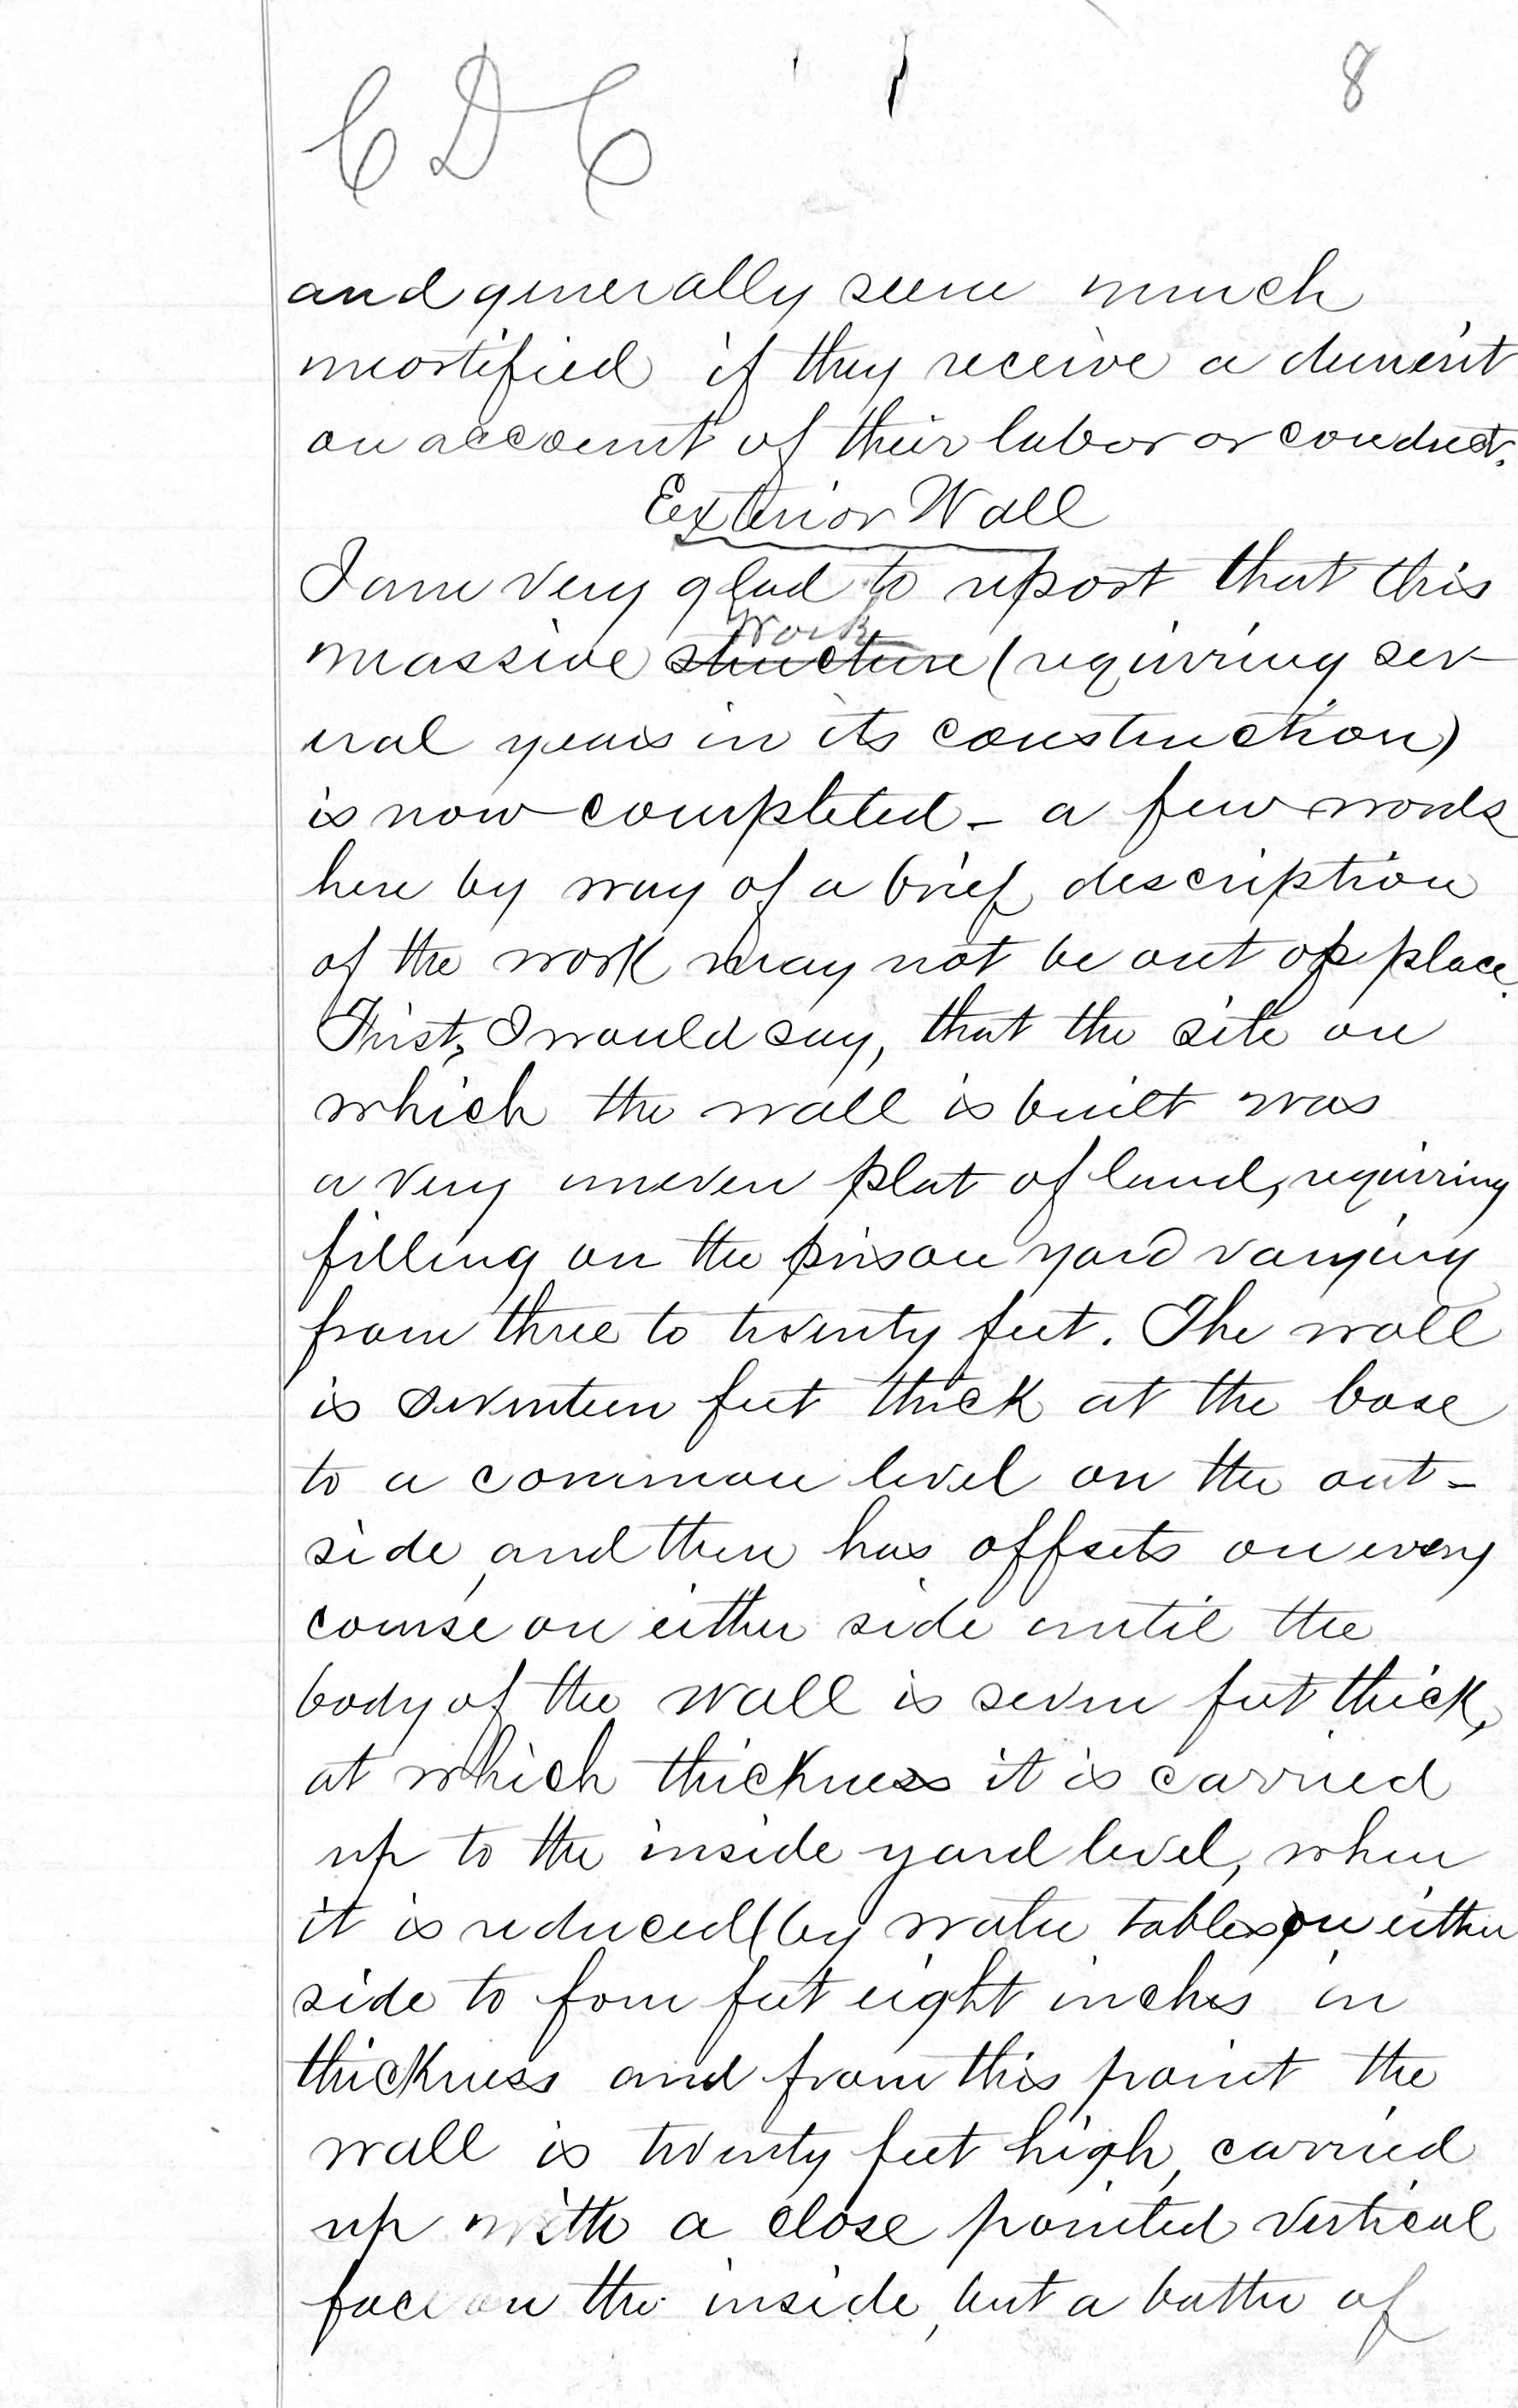 C D C 8
and generally seem much
mortified if they receive a demerit
on account of their labor or conduct.
Exterior Wall
I am very glad to report that this
work
massive structure (requiring sev-
eral years in its construction)
is now completed - a few words
here by way of a brief description
of the work may not be out of place.
First, I would say, that the site on
which the wall is built was
a very uneven plat of land, requiring
filling on the prison yard varying
from three to twenty feet. The wall
is seventeen feet thick at the base
to a common level on the out-
side, and then has offsets on every
course on either side until the
body of the wall is seven feet thick,
at which thickness it is carried
up to the inside yard level, when
it is reduced (by water tables) on either
side to four feet eight inches in
thickness and from this point the
wall is twenty feet high, carried
up with a close pointed vertical
face on the inside, but a batter of